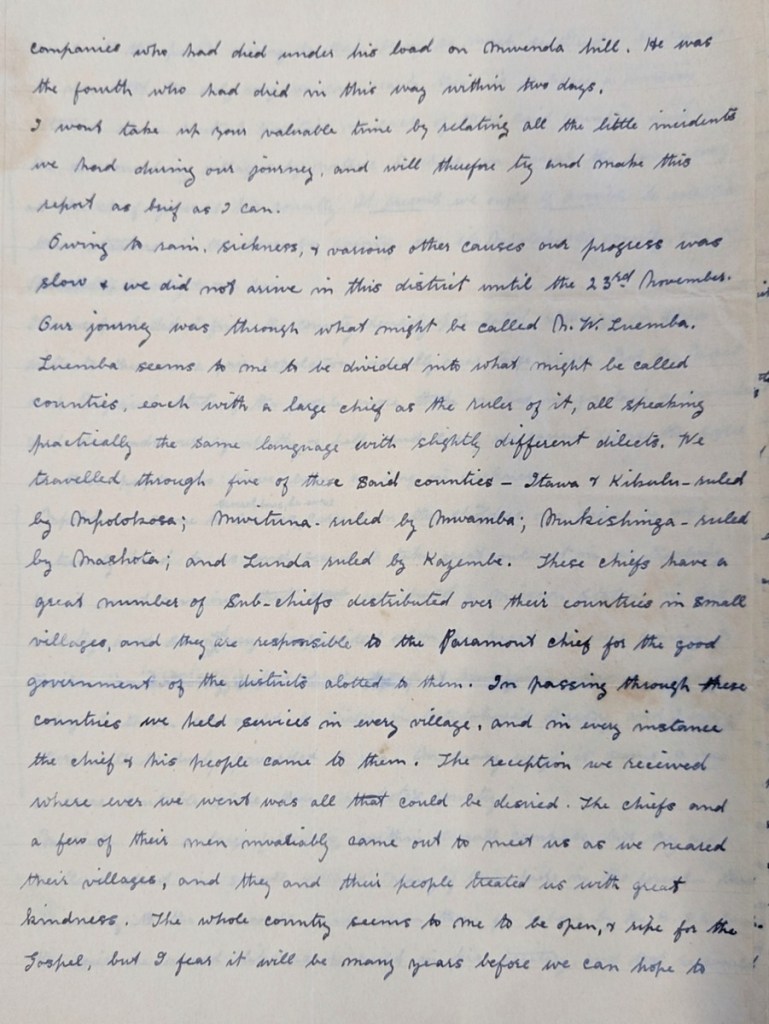 companies who had died under his load on Mwenda hill. He was
the fourth who had died in this way within two days.
I wont take up your valuable time by relating all the little incidents
we had during our journey, and will therefore try and make this
report as brief as I can.
Owing to rain, sickness, & various other causes our progress was
slow & we did not arrive in this district until the 23rd November.
Our journey was through what might be called N. W. Luemba.
Luemba seems to me to be divided into what might be called
counties, each with a large chief as the ruler of it, all speaking
practically the same language with slightly different dilects. We
travelled through five of these said counties – Itawa & Kibulu – ruled
by Mpolokosa; Mwituna – ruled by Mwamba; Mukishinga – ruled
by Mashota; and Lunda ruled by Kazembe. These chiefs have a
great number of Sub-chiefs distributed over their countries in small
villages, and they are responsible to the Paramount chief for the good
government of the districts alotted to them. In passing through these
countries we held services in every village, and in every instance
the chief & his people came to them. The reception we received
where ever we went was all that could be desired. The chiefs and
a few of their men invaliably came out to meet us as we neared
their villages, and they and their people treated us with great
kindness. The whole country seems to me to be open, & ripe for the
Gospel, but I fear it will be many years before we can hope to